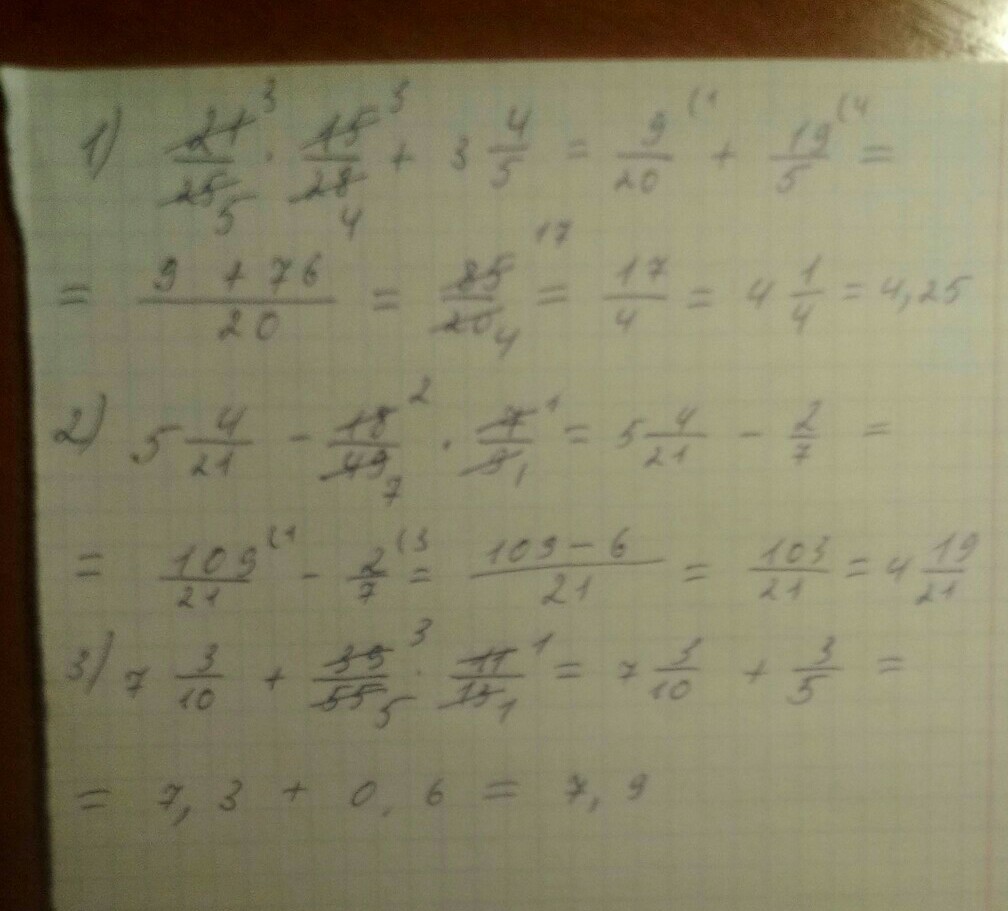 1) 21/25 3/5 · 15/28 3/4 + 3 4/5 = 9/20 (1 + 19/5 (4 =
= (9 + 76)/20 = 85/20 17/4 = 17/4 = 4 1/4 = 4,25
2) 5 4/21 - 18/49 2/7 · 7/9 1/1 = 5 4/21 - 2/7 =
= 109/21 (1 - 2/7 (3 = (109 - 6)/21 = 103/21 = 4 19/21
3) 7 3/10 + 39/55 3/5 · 11/13 1/1 = 7 3/10 + 3/5 =
= 7,3 + 0,6 = 7,9